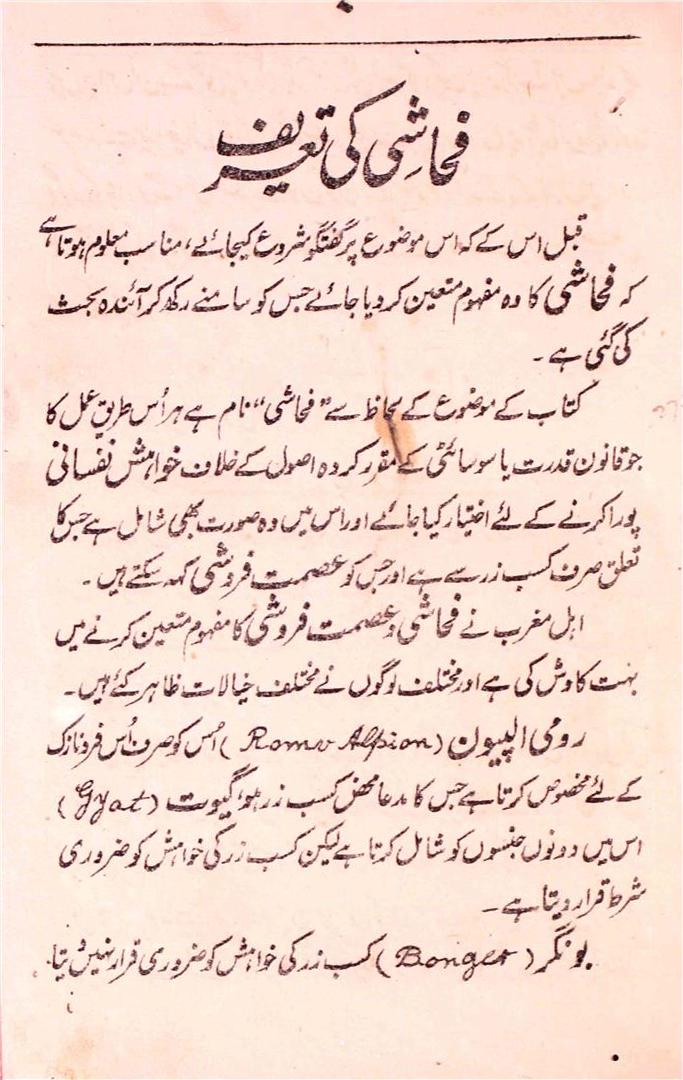 فحاشی کی تعریف
قبل اس کے کہ اس موضوع پر گفتگو شروع کیجائے، مناسب معلوم ہوتا ہے
کہ فحاشی کا وہ مفہوم متعین کر دیا جائے جس کو سامنے رکھ کر آئندہ بحث
کی گئی ہے ۔
کتاب کے موضوع کے لحاظ سے "فحاشی" نام ہے ہر اُس طریق عمل کا
جو قانون قدرت یا سوسائٹی کے مقرر کردہ اصول کے خلاف خواہش نفسانی
پورا کرنے کے لئے اختیار کیا جائے اور اس میں وہ صورت بھی شامل ہے جس کا
تعلق صرف کسب زر سے ہے اور جس کو عصمت فروشی کہہ سکتے ہیں ۔
اہل مغرب نے فحاشی و عصمت فروشی کا مفہوم متعین کرنے میں
بہت کاوش کی ہے اور مختلف لوگوں نے مختلف خیالات ظاہر کئے ہیں ۔
رومی الپیون (Romv Alpion) اُس کو صرف اُس فرد نازک
کے لئے مخصوص کرتا ہے جس کا مدعا محض کسب زر ہو، گیوت (Gyot)
اس میں دونوں جنسوں کو شامل کرتا ہے لیکن کسب زر کی خواہش کو ضروری
شرط قرار دیتا ہے ۔
بونگر (Bonger) کسب زر کی خواہش کو ضروری قرار نہیں دیتا۔